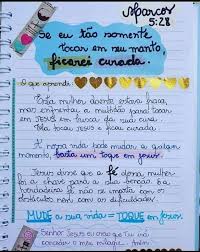 Marcos
5:28
Se eu tão somente
tocar em seu manto
ficarei curada.
O que aprendi:
Esta mulher doente estava fraca,
mas enfrentou a multidão para tocar
em JESUS em busca da sua cura.
Ela tocou JESUS e ficou curada.
A nossa vida pode mudar a qualquer
momento, basta um toque em Jesus.
Jesus disse que a fé dessa mulher
foi a chave para a sua benção. A
verdadeira fé não se importa com os
obstáculos nem com as dificuldades.
MUDE a sua vida = TOQUE em Jesus.
Senhor Jesus eu creio que Tu irá
conceder o meu milagre. Amém